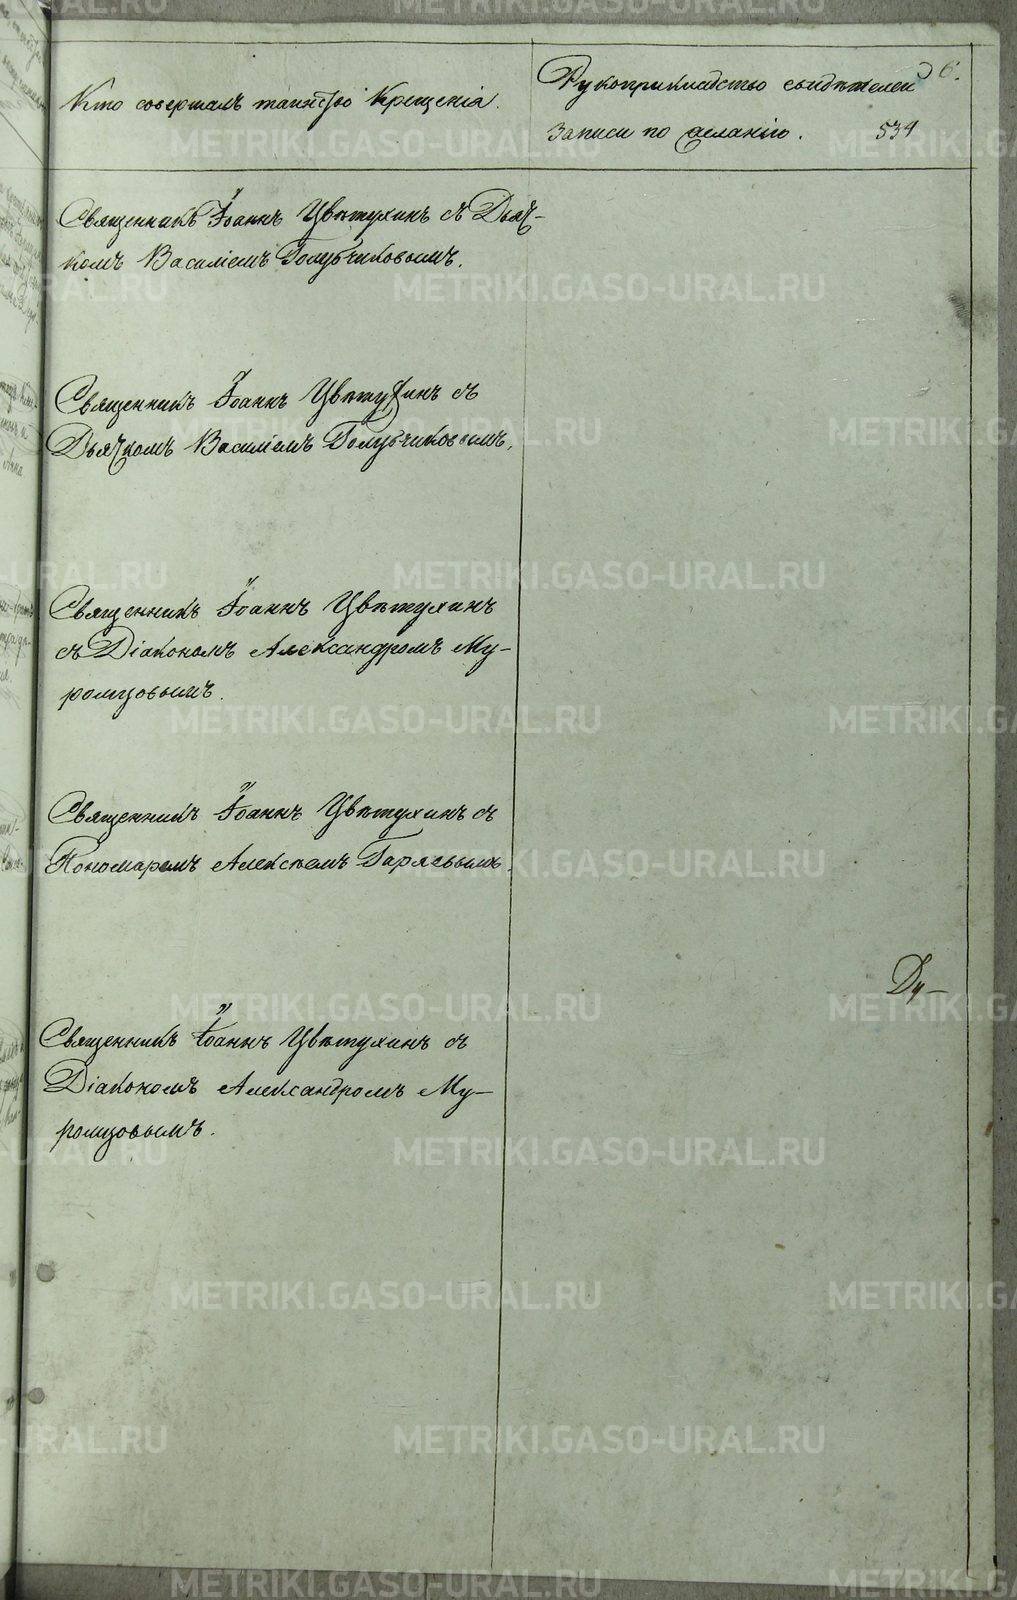 Кто совершалъ таинство Крещенія.
Рукоприкладство свидѣтелей
записи по желанію.
6.
534
Священникъ Іоаннъ Цвѣтухинъ съ Дьяч-
комъ Василіемъ Голубчиковымъ.
Священникъ Іоаннъ Цвѣтухинъ съ
Дьячкомъ Василіемъ Голубчиковымъ.
Священникъ Іоаннъ Цвѣтухинъ
съ Діакономъ Александромъ Му-
ромцовымъ.
Священникъ Іоаннъ Цвѣтухинъ съ
Пономаремъ Алексѣемъ Гаряевымъ.
Ду-
Священникъ Іоаннъ Цвѣтухинъ съ
Діакономъ Александромъ Му-
ромцовымъ.
METRIKI.GASO-URAL.RU